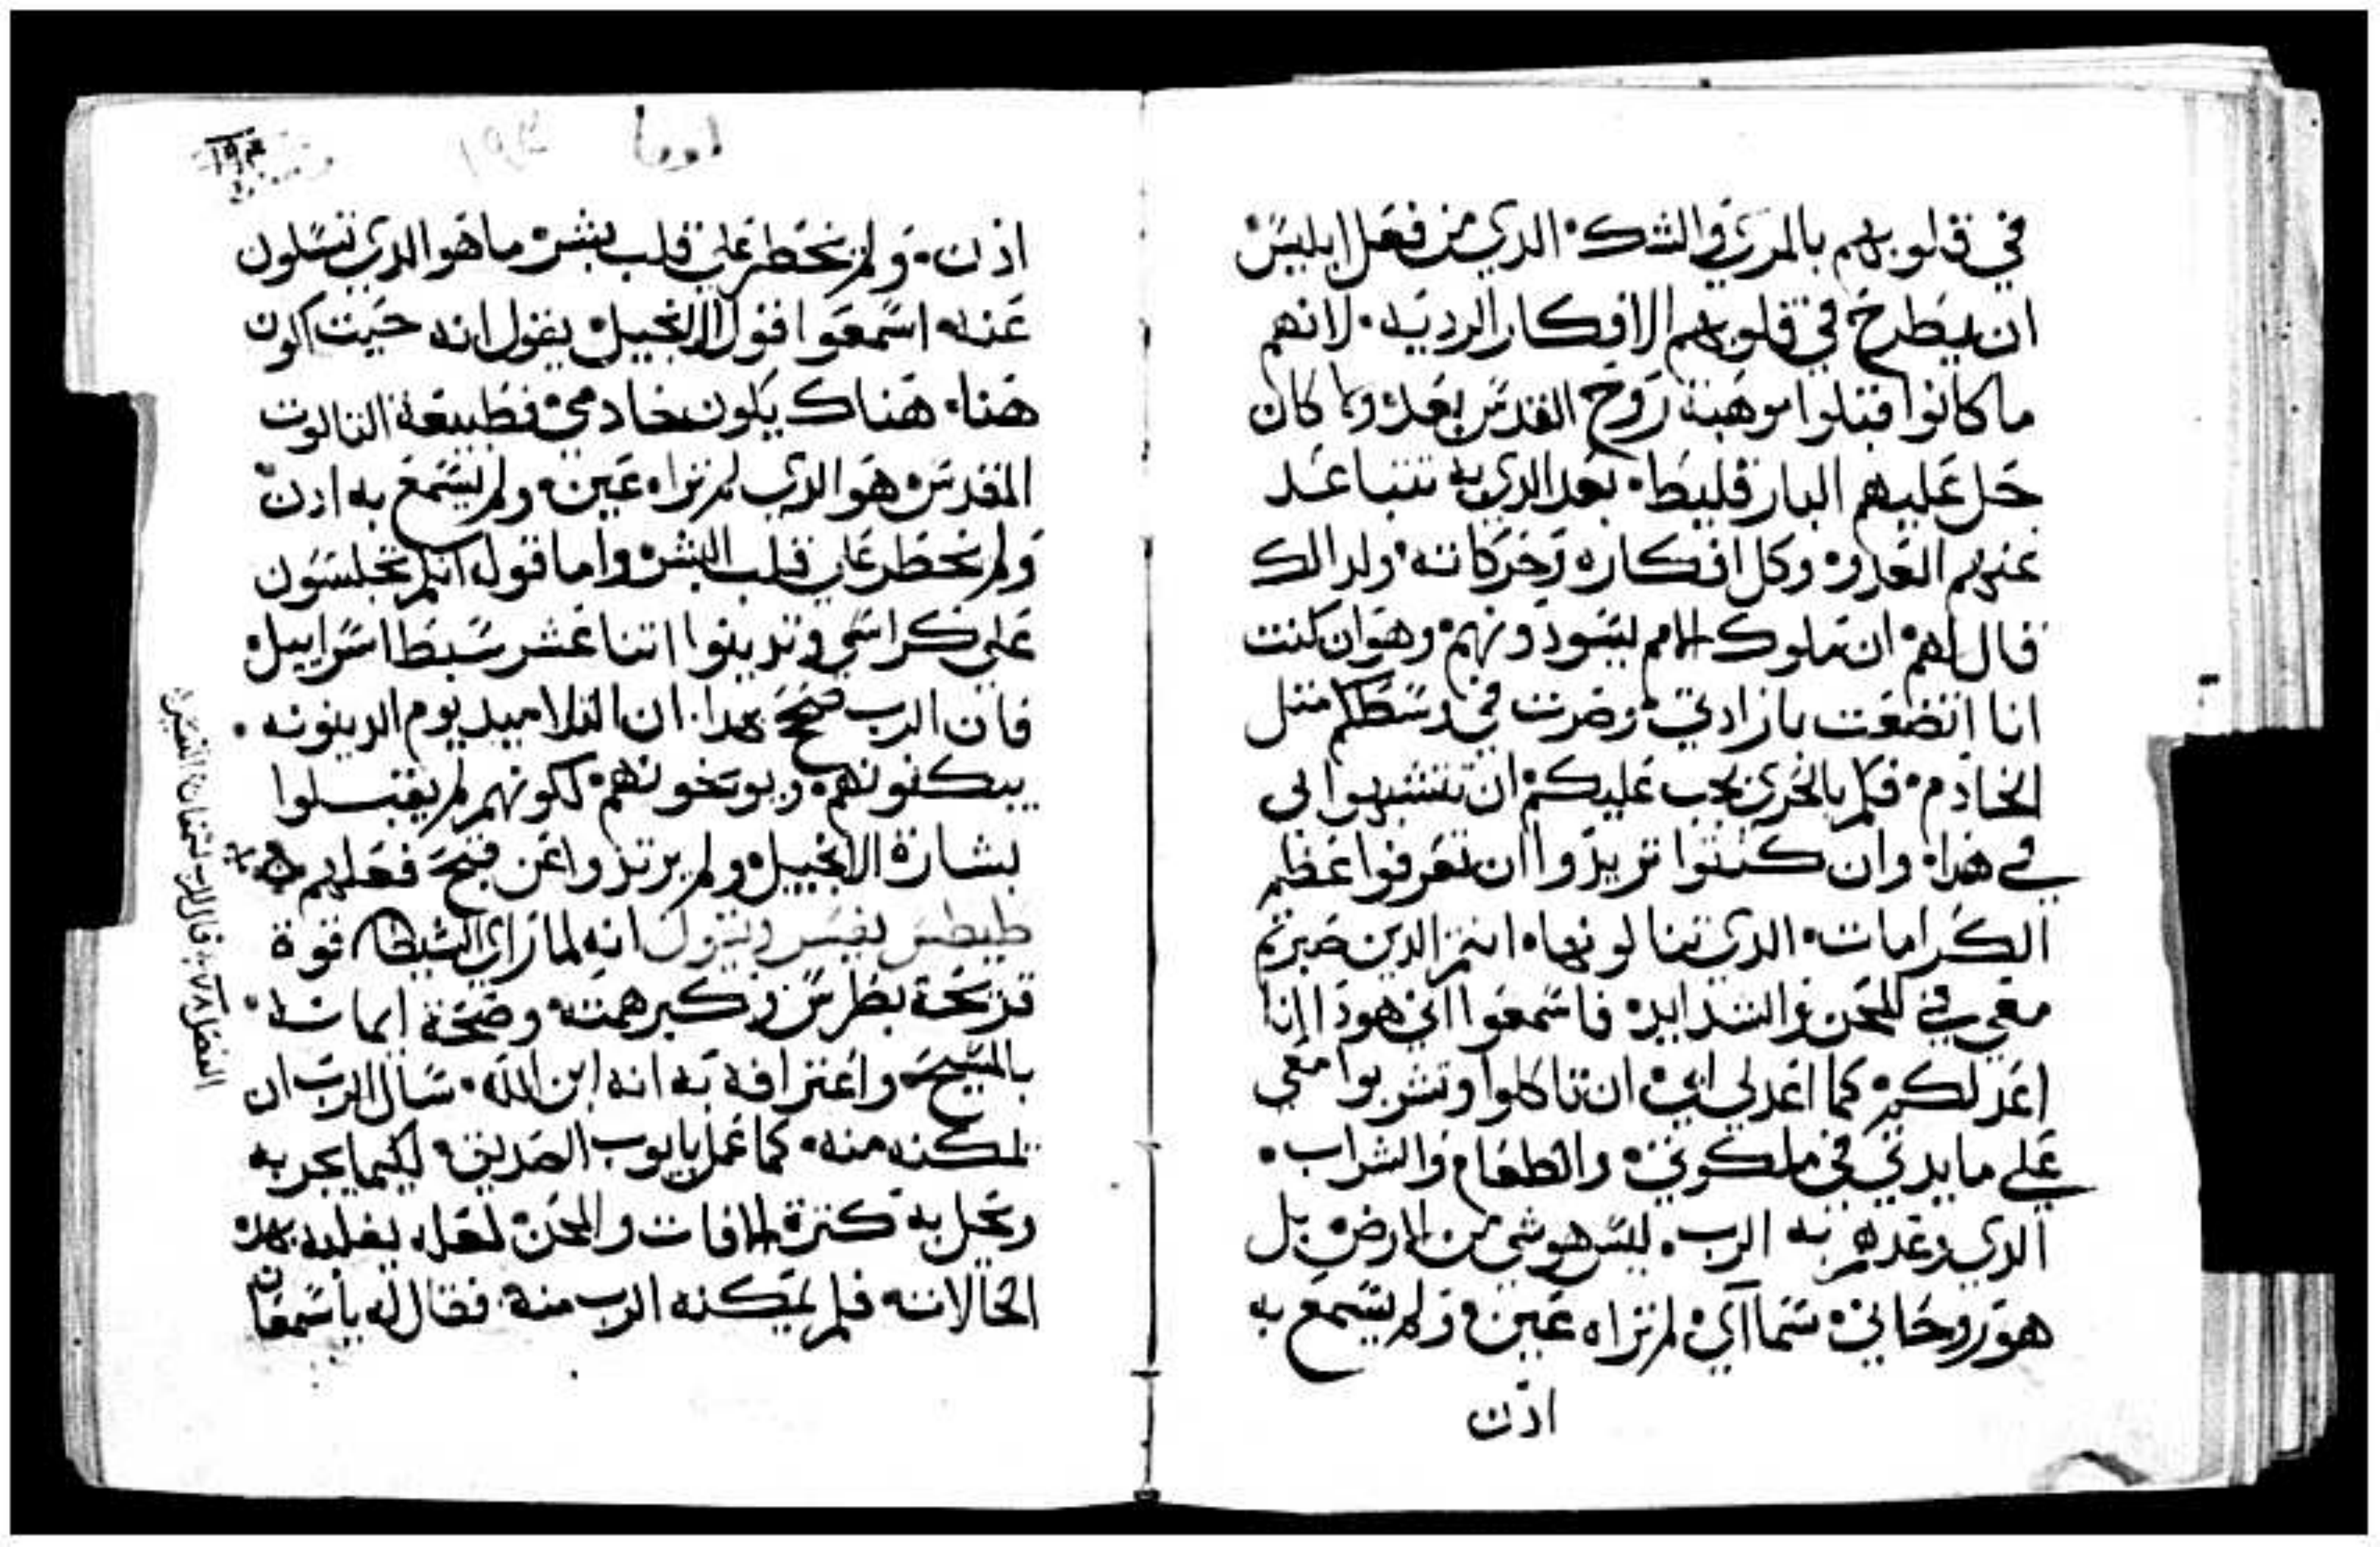 في قلوبهم بالمري والشك الدي من فعل ابليس
ان يطرح في قلوبهم الافكار الرديه لانهم
ما كانوا قبلوا موهبة روح القدس بعد ولما كان
حل عليهم البارقليط بعد الدي به تتباعد
عنهم العدو وكل افكاره وحركاته ولدالك
قال لهم ان ملوك الامم ليسودونهم وهو ان كنت
انا اتضعت بارادتي وصرت في وسطكم متل
الخادم فكم بالحري يجب عليكم ان تتشبهوا بى
في هدا وان كنتوا تريدوا ان تعرفوا عظم
الكرامات الدي تنالونها انتم الدين صبرتم
معي في المحن والشدايد فاسمعوا اني هودا انا
اعد لكم كما اعد لي ابي ان تاكلوا وتشربوا معي
علي مايدتي في ملكوتي والطعام والشراب
الدي وعدهم به الرب ليس هو شي من الارض بل
هو روحاني سماآي لم تراه عين ولم يسمع به
ادن
لوقا ١٩٣
١٩٣
ادن ولم يخطر علي قلب بشر ما هو الدي تسلون
عنه اسمعوا قول الانجيل يقول انه حيت اكون
هنا هناك يكون خادمي فطبيعة التالوت
المقدس هو الدي لم تراه عين ولم يسمع به ادن
ولم يخطر علي قلب البشر واما قوله انكم تجلسون
علي كراسي وتدينوا اتنا عشر سبط اسراييل
فان الرب صحح بهدا ان التلاميد يوم الدينونه
يبكتونهم ويوبخونهم لكونهم لم يقبلوا
بشارة الانجيل ولم يرتدوا عن قبح فعلهم
طيطس يفسر ويقول انه لما راي الشيطان قوة
قريحة بطرس وكبر همته وصحة ايمانه
بالمسيح واعترافه به انه ابن الله سال الرب ان
تمكنه منه كما عمل بايوب الصديق لكيما يجربه
ويحل به كترة الافات والمحن لعله يغلبه بهده
الحالاته فلم يمكنه الرب منه فقال له ياسمعان
الفصل ٧٨ قال الرب لسمعان الصفا